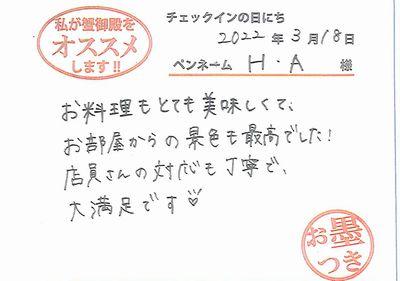 私が蟹御殿を
オススメ
します!!
チェックインの日にち
2022年3月18日
ペンネーム H・A 様
お料理もとても美味しくて、
お部屋からの景色も最高でした!
店員さんの対応も丁寧で、
大満足です♡
お墨
つき